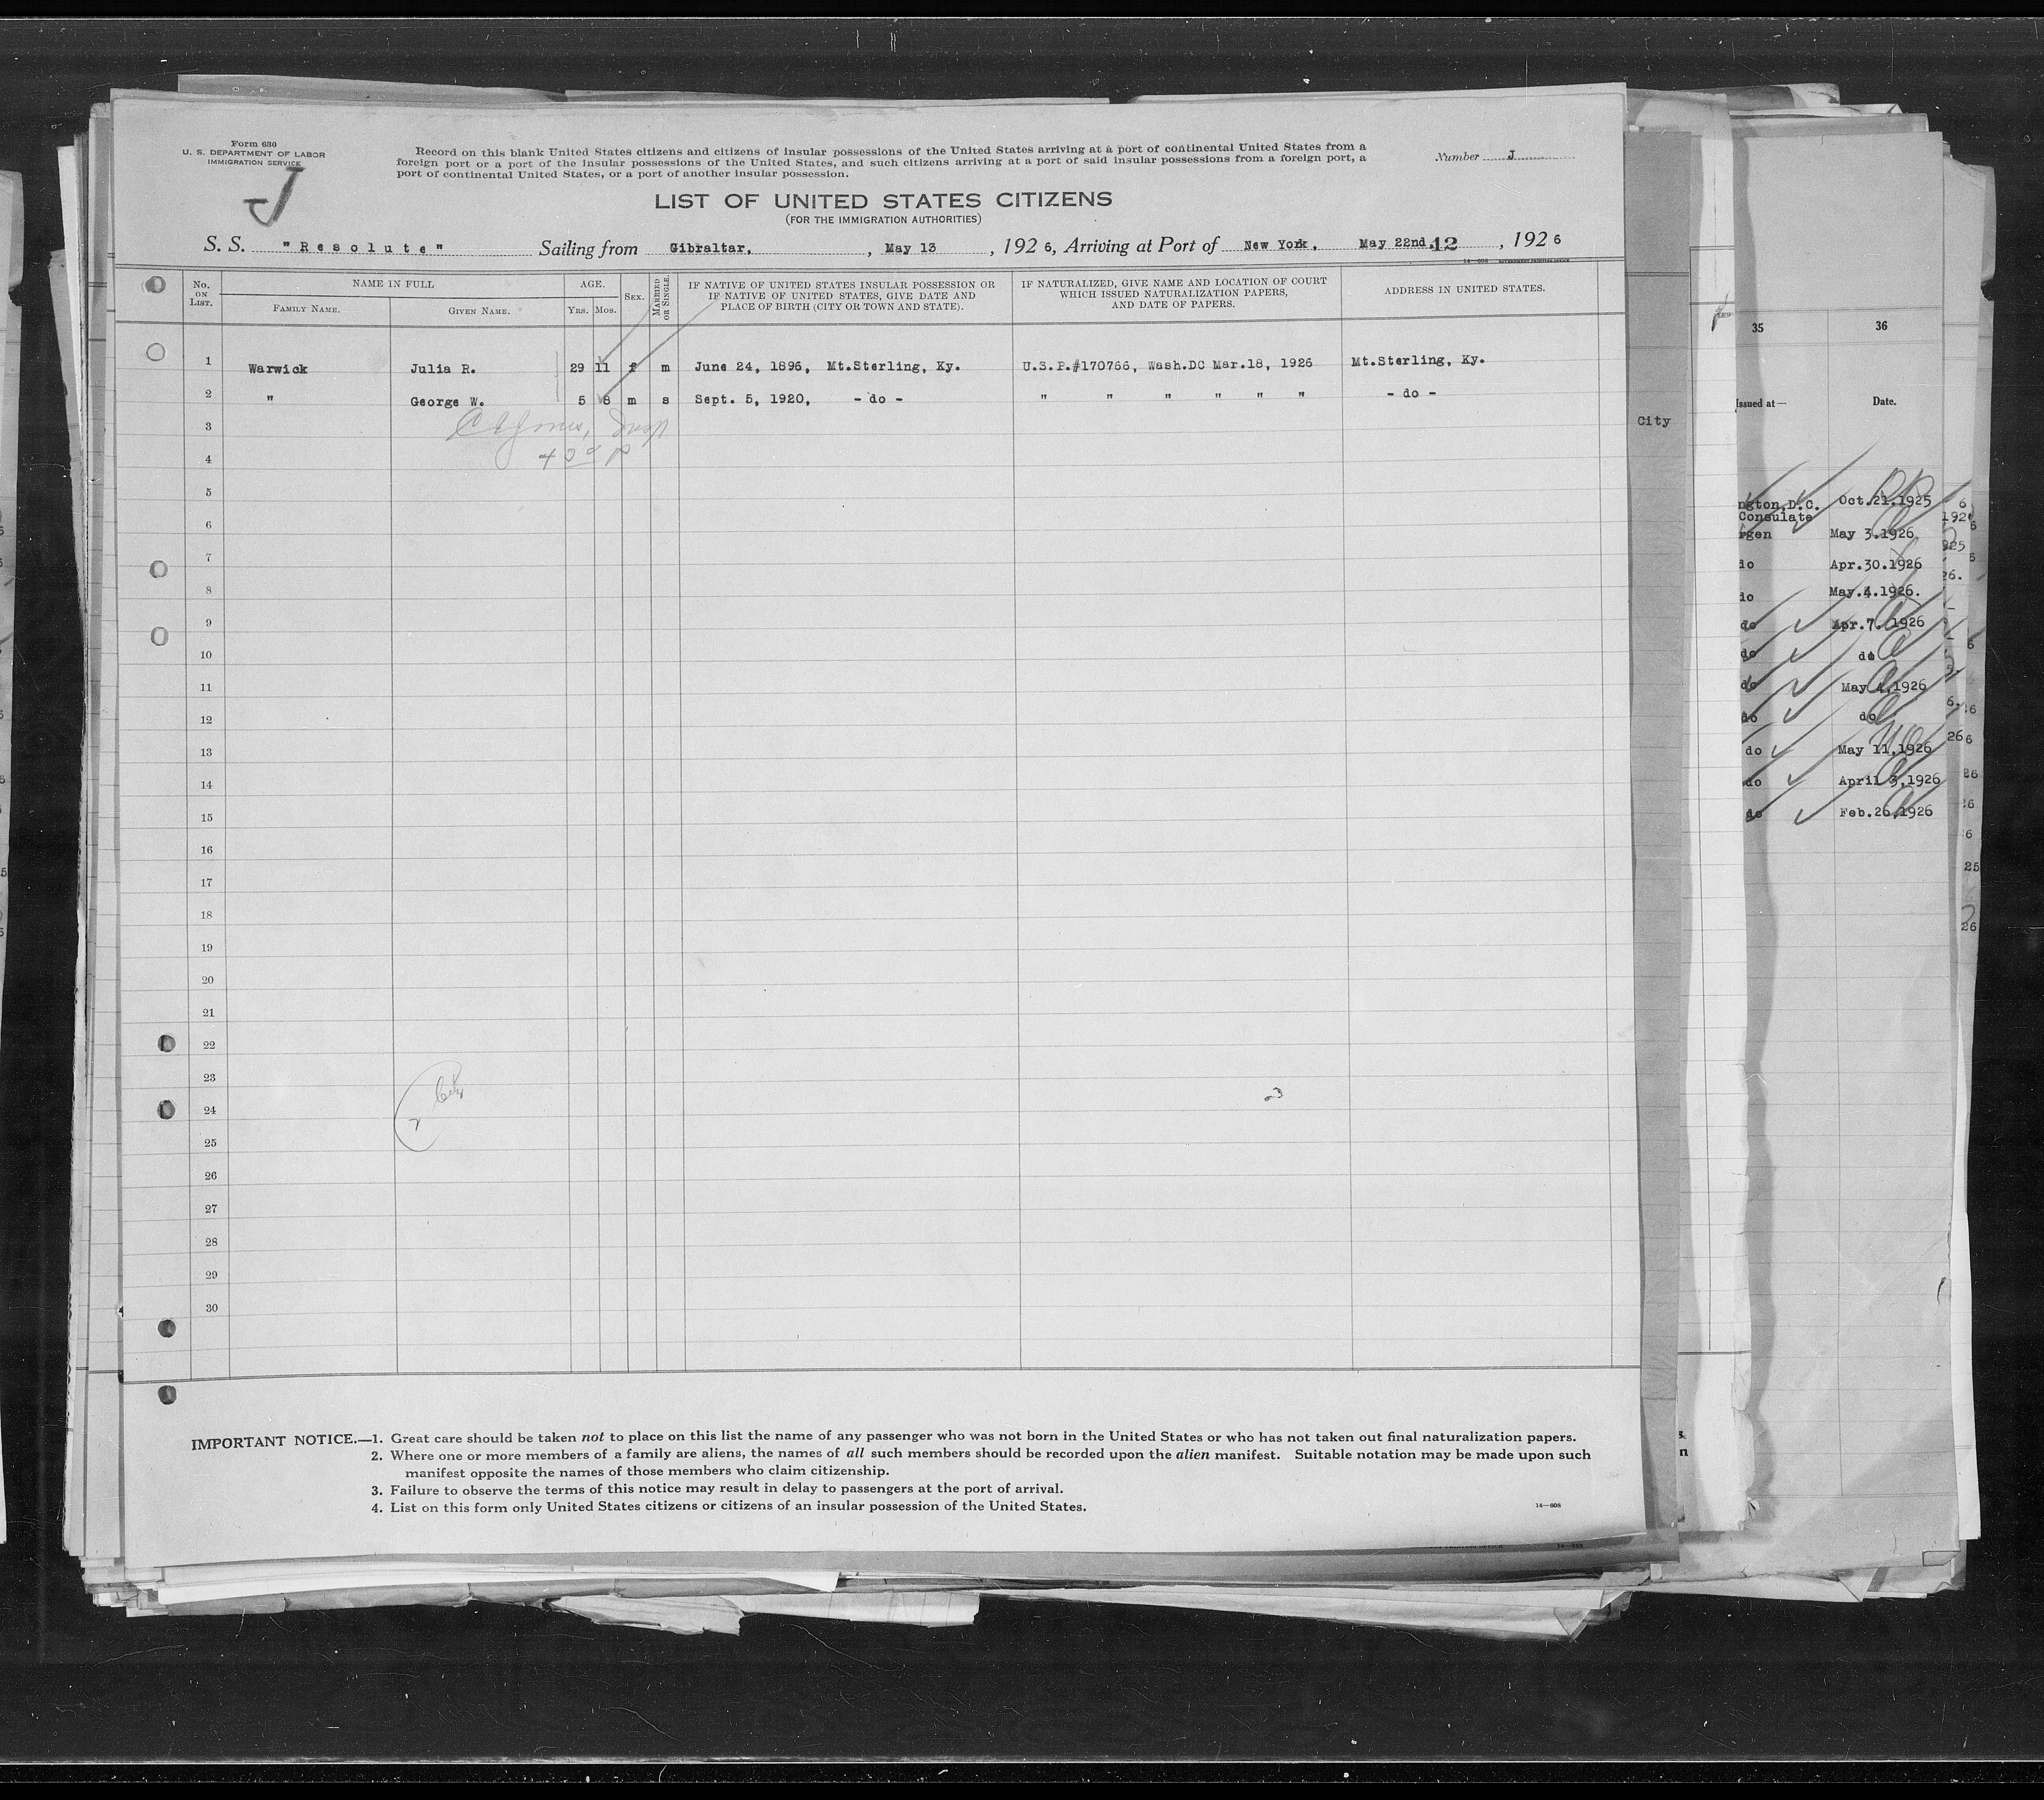 Form 630
U. S. DEPARTMENT OF LABOR
IMMIGRATION SERVICE
J
Record on this blank United States citizens and citizens of insular possessions of the United States arriving at a port of continental United States from a
foreign port or a port of the insular possessions of the United States, and such citizens arriving at a port of said insular possessions from a foreign port, a
port of continental United States, or a port of another insular possession.
Number J
LIST OF UNITED STATES CITIZENS
(FOR THE IMMIGRATION AUTHORITIES)
S. S. "Resolute" Sailing from Gibraltar, , May 13 , 1926, Arriving at Port of New York, May 22nd 12 , 1926
14—608 GOVERNMENT PRINTING OFFICE
No. ON LIST.
NAME IN FULL
FAMILY NAME. GIVEN NAME.
AGE.
YRS. MOS.
SEX.
MARRIED OR SINGLE.
IF NATIVE OF UNITED STATES INSULAR POSSESSION OR
IF NATIVE OF UNITED STATES, GIVE DATE AND
PLACE OF BIRTH (CITY OR TOWN AND STATE).
IF NATURALIZED, GIVE NAME AND LOCATION OF COURT
WHICH ISSUED NATURALIZATION PAPERS,
AND DATE OF PAPERS.
ADDRESS IN UNITED STATES.
1 Warwick Julia R. 29 11 f m June 24, 1896, Mt.Sterling, Ky. U.S.P.#170766, Wash.DC Mar.18, 1926 Mt.Sterling, Ky.
2 " George W. 5 8 m s Sept. 5, 1920, - do - " " " " " " - do -
3
4
5
6
7
8
9
10
11
12
13
14
15
16
17
18
19
20
21
22
23
24
25
26
27
28
29
30
IMPORTANT NOTICE.—1. Great care should be taken not to place on this list the name of any passenger who was not born in the United States or who has not taken out final naturalization papers.
2. Where one or more members of a family are aliens, the names of all such members should be recorded upon the alien manifest. Suitable notation may be made upon such
manifest opposite the names of those members who claim citizenship.
3. Failure to observe the terms of this notice may result in delay to passengers at the port of arrival.
4. List on this form only United States citizens or citizens of an insular possession of the United States.
14—608
City
35 36
Issued at— Date.
ngton,D.C. Oct.21.1925
Consulate
rgen May 3.1926
do Apr.30.1926
do May.4.1926.
do Apr.7.1926
do do
do May 4,1926
do do
do May 11,1926
do April 3,1926
do Feb.26,1926